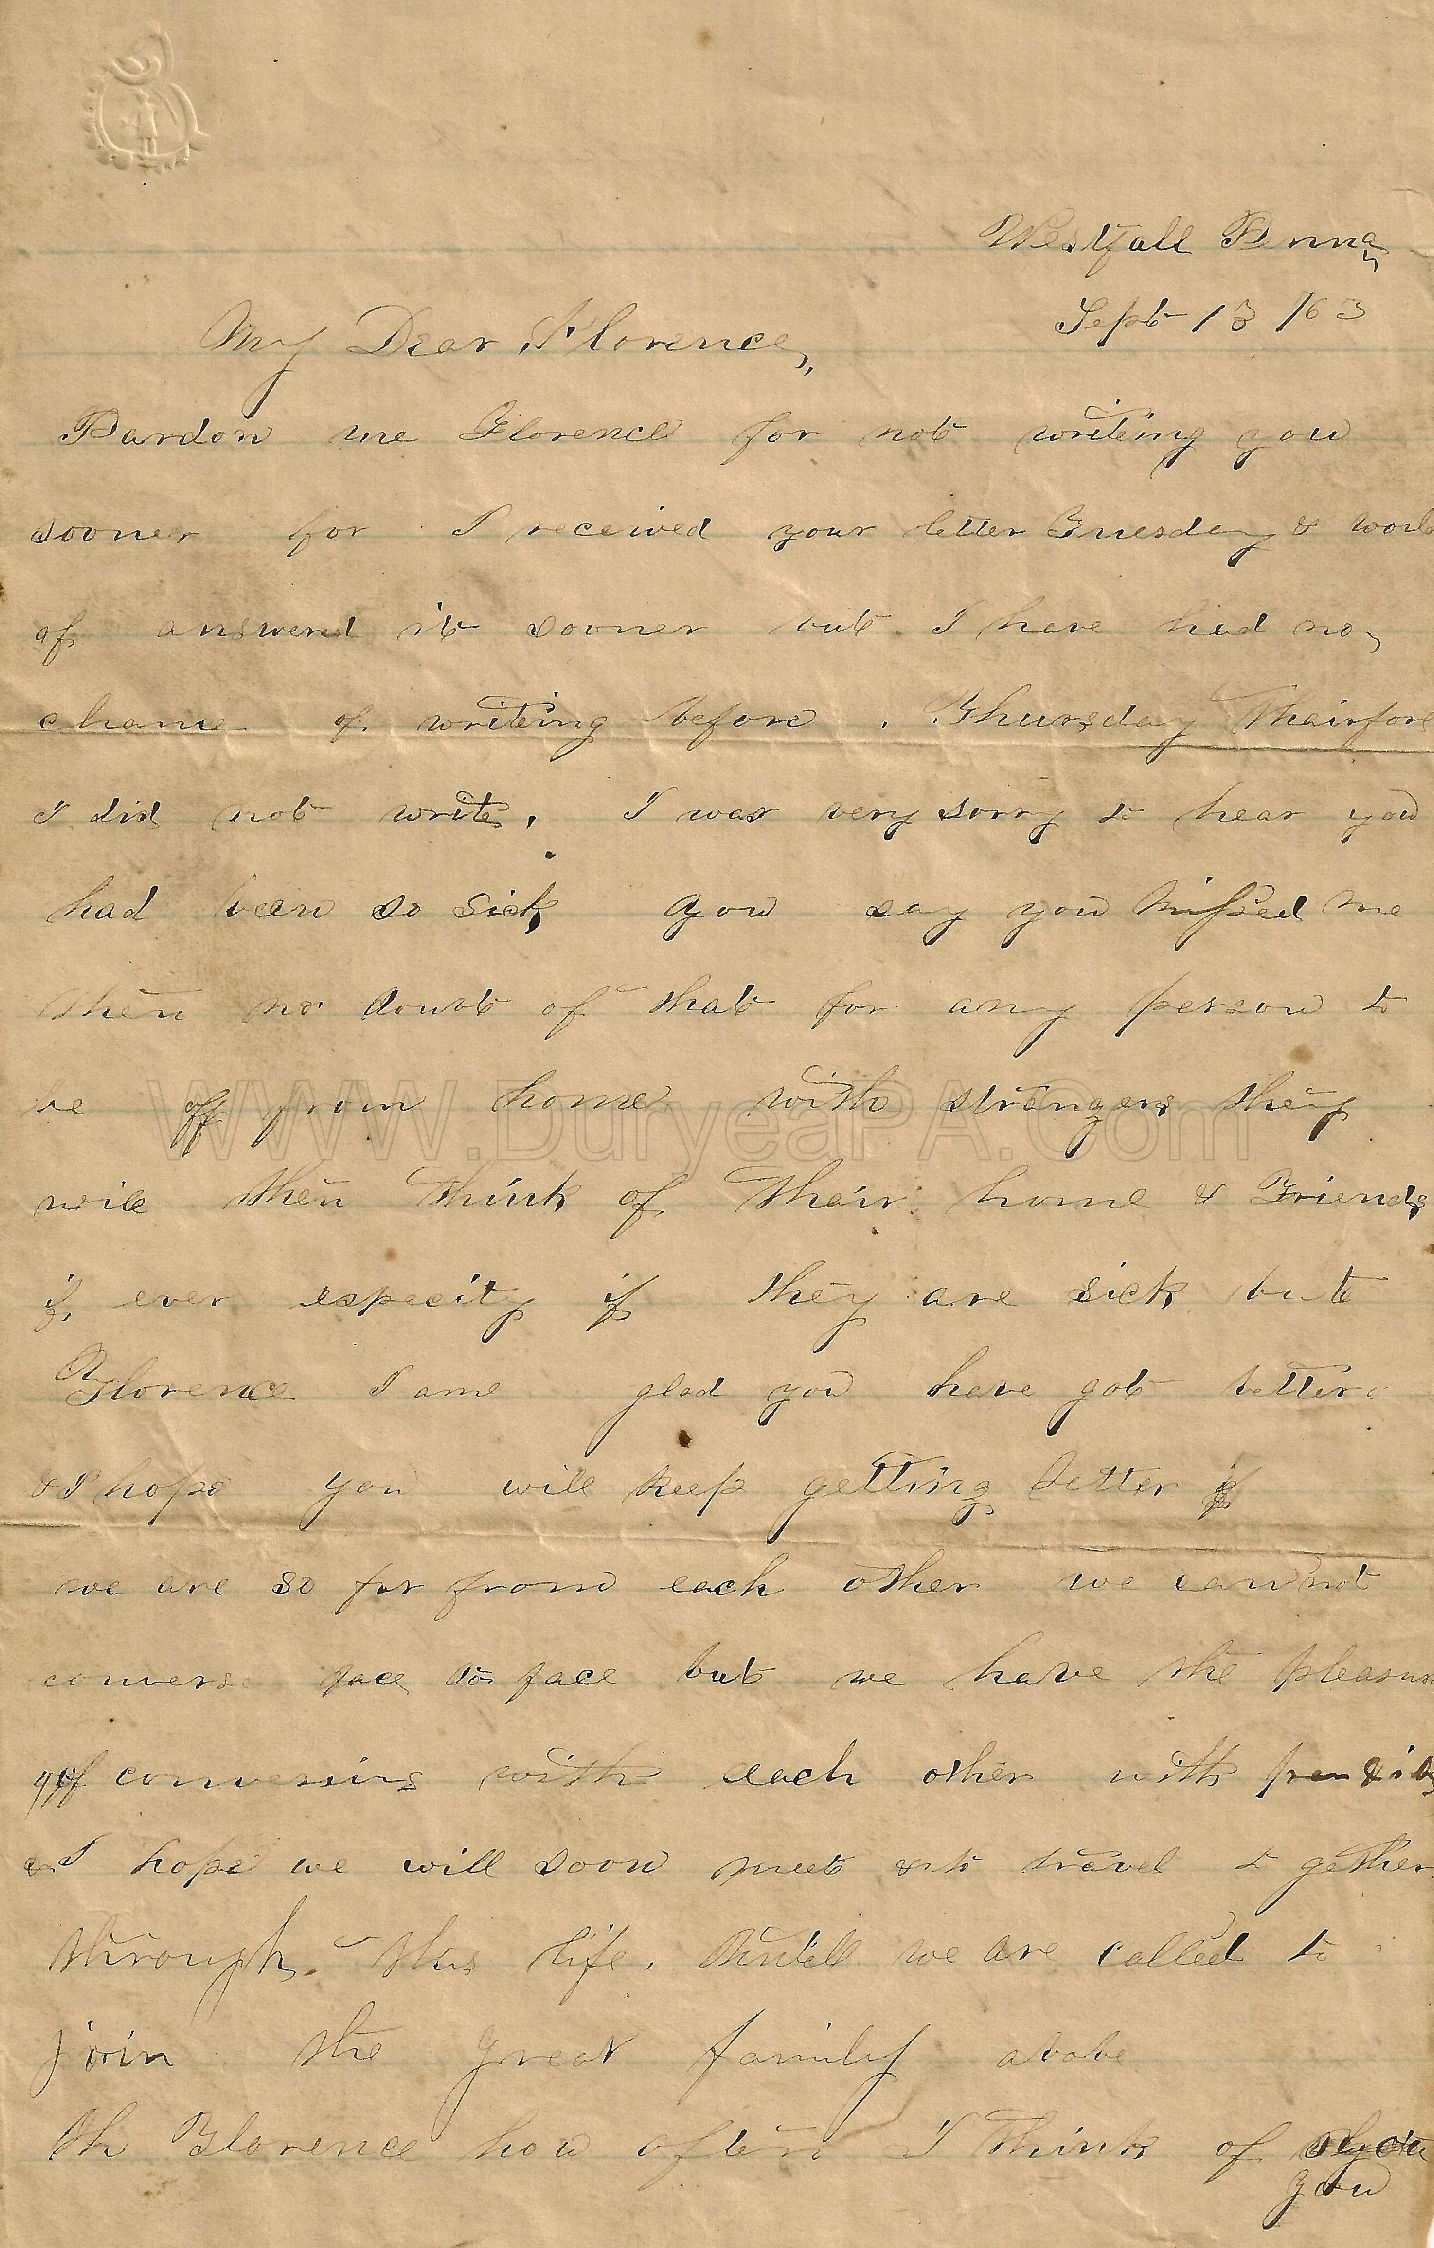 Westfall Penna,
Sept 13 /63
My Dear Florence,
Pardon me Florence for not writing you
sooner for I received your letter Tuesday & would
of answerd it sooner but I have had no
chance of writing before . Thursday thairfore
I did not write. I was very sorry to hear you
had been so sick you say you missed me
then no doubt of that for any person to
be off from home with strangers they
will then think of thair home & Friends
if ever espacity if they are sick but
Florence I ame glad you have got better
& I hope you will keep getting better if
we are so far from each other we can not
converse face to face but we have the pleasure
of conversing with each other with pen & ink
& I hope we will soon meet & to travel to gether
through this life. Untill we are called to
join the great family above
Oh Florence how often I think of
you
WWW.DuryeaPA.Com